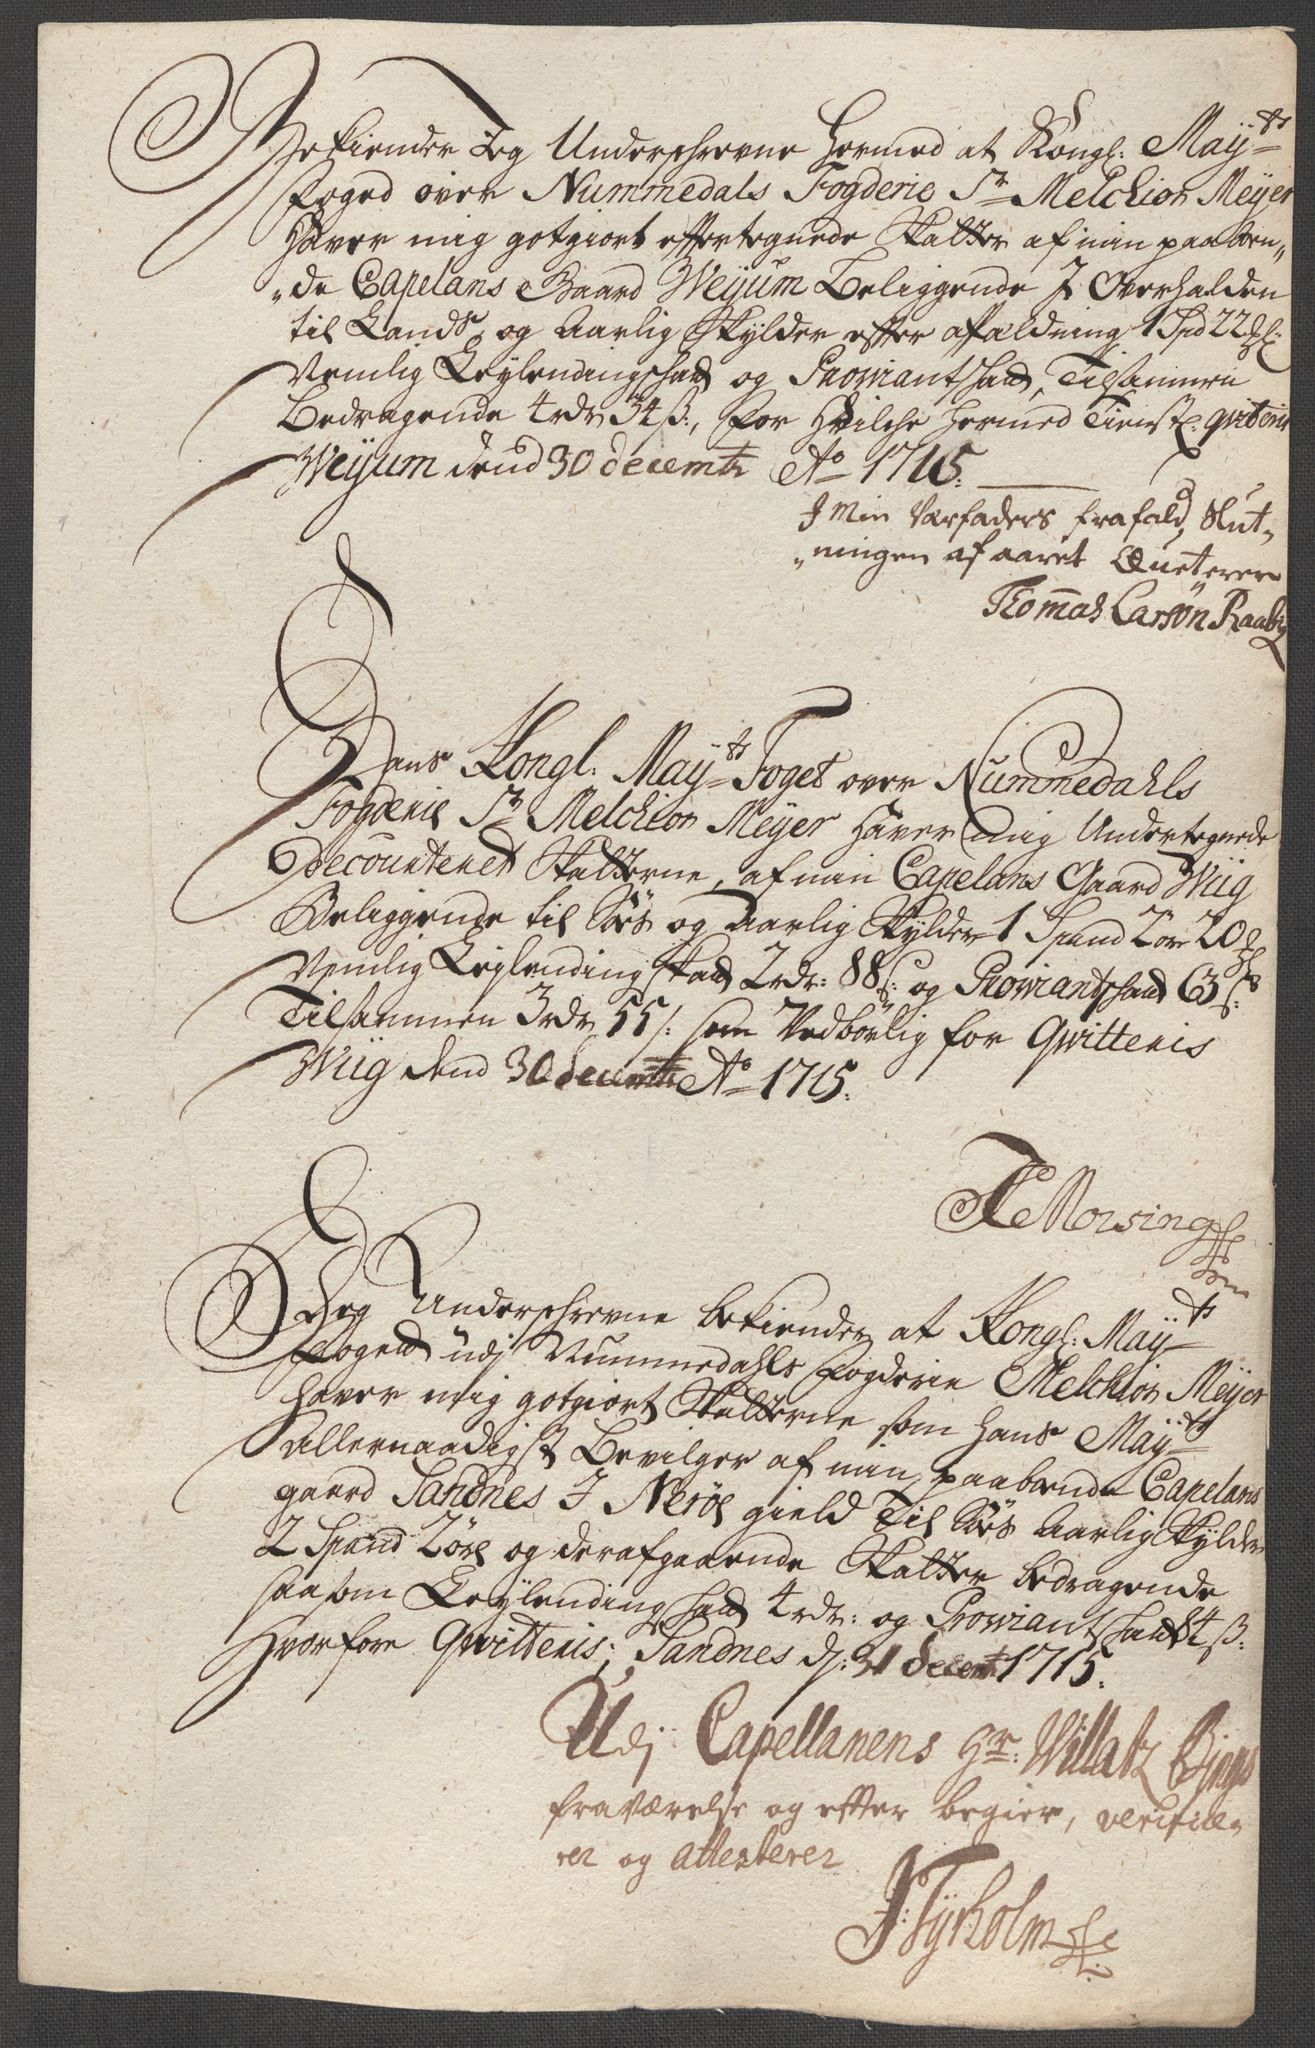 Bekiender Jeg Underschrevne Hermed at Kongl: Maÿts
Foged over Nummedals Fogderie Sr Melchior Meÿer
Hâver mig gotgiort effterregnede Skatter af min paaboen„
„de Capelans Gaard Weÿum Beliggende J Overhalden
til Lands, og Aarlig Skylder efter affeldning 1 Spd 22 Mkl:
Nemlig Leÿlendingschatt og Prowiantschatt, Tilsammen
Bedragende 4 rdr 34 ß:, for Hvilche hermed Tienstl. qviteris
Weÿum dend 30 decembr Ao 1715.
J Min Værfaders frafald, Slut„
„ningen af aaret Qviterer
Thomas Larsøn Raabÿe
Hans Kongl. Maÿts Foget over Nummedahls
Fogderie Sr Melchior Meÿer Hâver mig Undertegnede
decourteret Skatterne, af min Capelans Gaard Wiig
Beliggende til Söes og Aarlig Skylder 1 Spand 2 ör 20 Mkl
Nemlig Leÿlending skatt 2 rdr: 88 ß: og Prowiantschatt 63 ß:
Tilsammen 3 rdr 55 ß: som Vedbörlig for Qvitteris
Wiig dend 30 decembr Ao 1715.
Morsing
Jeg Underschrevne bekiender at Kongl: Maÿts
Fogett udj Nummedahls Fogderie Melchior Meÿer
haver mig gotgiort Skatterne som Hans Maÿts
Allernaadigst Bevilger af min paaboende Capelans
gaard Sandnes J Nerøe gield Til Söes Aarlig Skylder
2 Spand 2 öre og derafgaaende Skatter bedragende
saasom Leÿlending schatt 4 rdr: og Prowiant schatt 84 ß:
Hvorfore Qvitteris; Sandnes d: 31 decembr 1715.
Udj Capellanens Hr: Willatz Bings
fraværelse og efter begier, verificer„
rer og attesterer
J: Tÿrholm